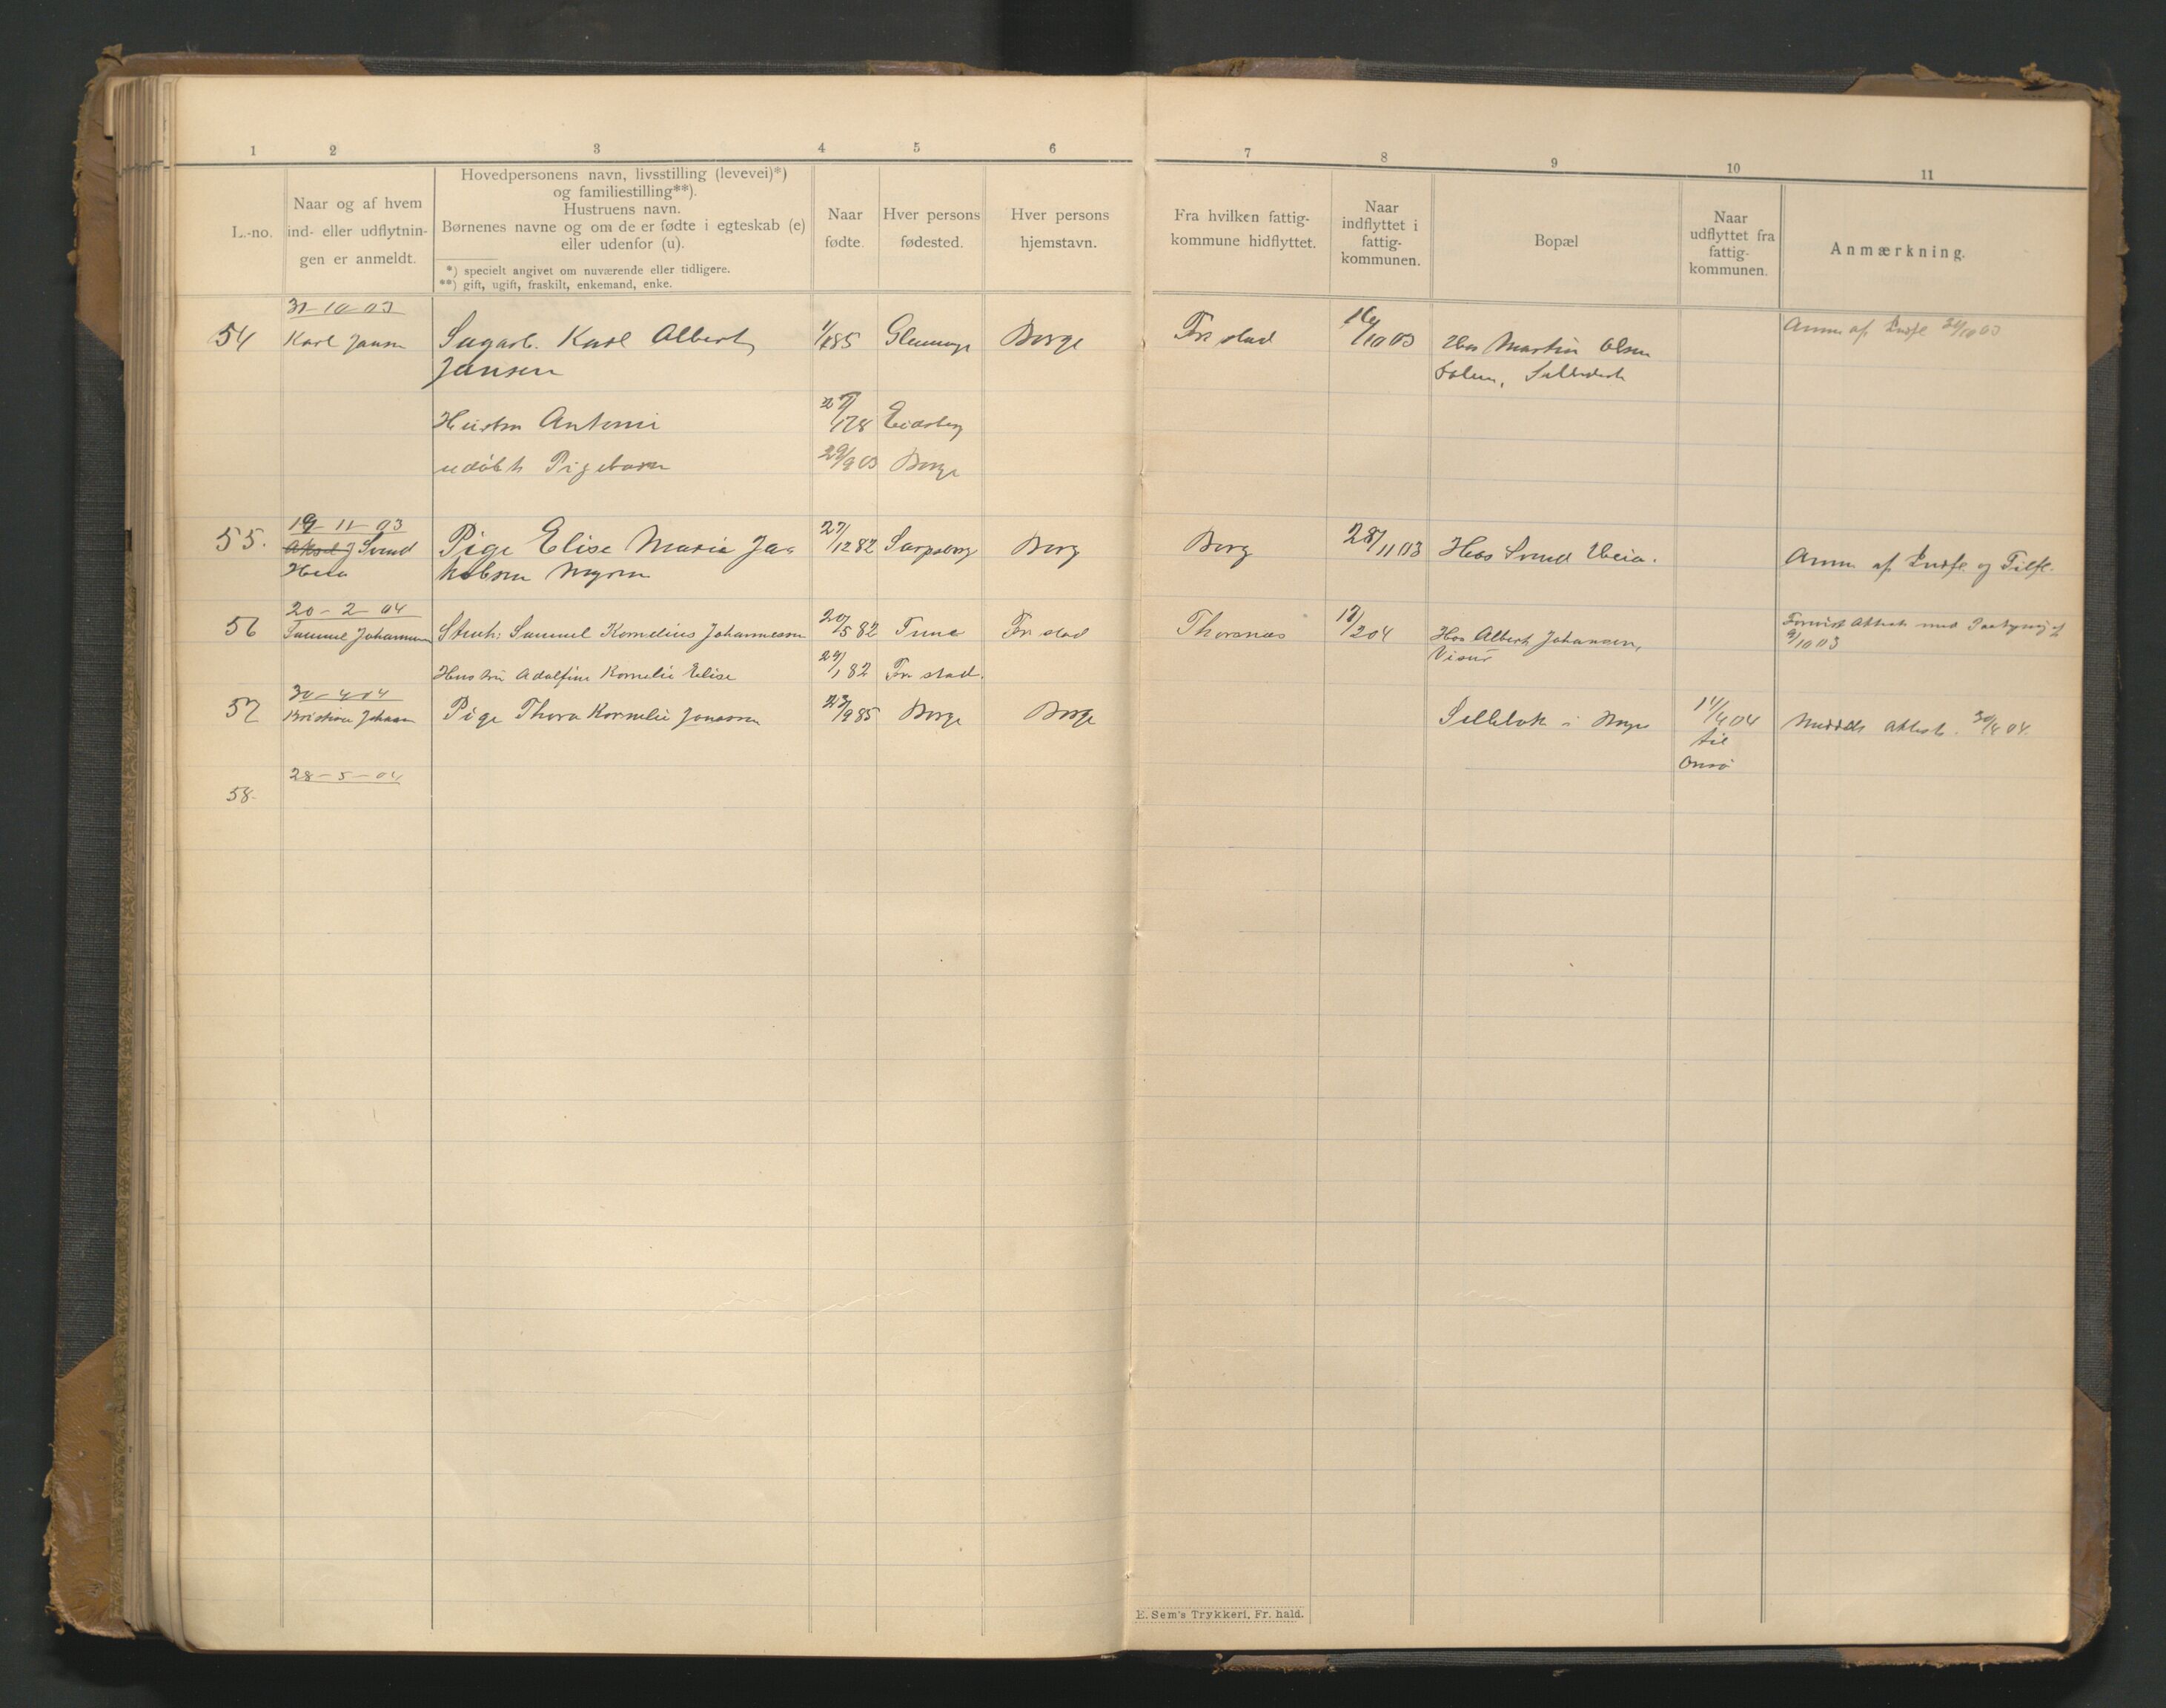 1 2 3 4 5 6 7 8 9 10 11
L.-no.
Naar og af hvem
ind- eller udflytnin-
gen er anmeldt.
Hovedpersonens navn, livsstilling (levevei)*)
og familiestilling**).
Hustruens navn.
Børnenes navne og om de er fødte i egteskab (e)
eller udenfor (u).
*) specielt angivet om nuværende eller tidligere.
**) gift, ugift, fraskilt, enkemand, enke.
Naar
fødte.
Hver persons
fødested.
Hver persons
hjemstavn.
Fra hvilken fattig-
kommune hidflyttet.
Naar
indflyttet i
fattig-
kommunen.
Bopæl
Naar
udflyttet fra
fattig-
kommunen.
Anmærkning.
31-10-03
54 Karl Jansen Sagarb. Karl Albert 85 Glemmge Borge Fr. stad 16/10 03 Hos Martin Olsen Anm. af Indfl 31/10 03
Jansen
Hustru Antoni 27/1 78 Eidsberg
udøbt Pigebarn 29/9 03 Borge
19-11-03
55. Svend Pige Elise Marie Ja- 27/12 82 Sarpsborg Borg Borg 28/11 03 Hos Svend Heia. Anm. af Indfl. og Tilfl.
Heia kobsen Myren
20-2-04
56 Samuel Johannesen Stenh: Samuel Kornelius Johannessen 20/5 82 Tune Fr. stad Thorsnæs 18/2 04 Hos Albert Johansen, Attest med
Visur 9/10 03
Hustru Adolfine Kornelie Elise 24/1 82 Fr. stad.
30-4-04
57 Kristian Johansen Pige Thora Kornelie Jonassen 23/9 85 Borge Borge Sellebak i Borge 14/4 04 Meddelt Attest. 30/4 04.
til
Onsø
28-5-04
58.
E. Sem's Trykkeri, Fr. hald.